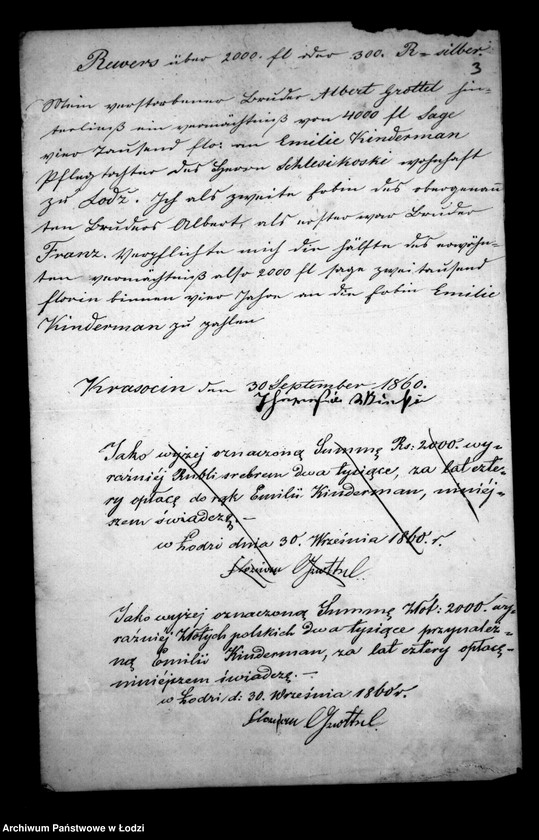 Rewers über 2000. fl oder 300. R=silber.
3
Mein verstorbener Bruder Albert Grottel hin-
terließ ein vermächtniß von 4000 fl Sage
vier Tausend flo: an Emilie Kinderman
Pflegtochter des Herrn Schlesikoski wohnhaft
zu Lodz. Ich als zweite Erbin des obergenann
ten Bruders Albert, als erster war Bruder
Franz. Verpflichte mich die hälfte des erwähn-
ten vermächtniß also 2000 fl sage zwei tausend
florin binnen vier Jahre an die Erbin Emilie
Kinderman zu zahlen
Krasocin den 30 September 1860.
Jako wyżej oznaczoną Summę Rs: 2000. wy-
raźniéj Rubli srebrem dwa tysiące, za lat czte-
ry opłacę do rąk Emilii Kinderman, niniéj-
szem świadczę. —
w Łodzi dnia 30. Września 1860. r.
Grottel.
Jako wyżej oznaczoną Summę Złot: 2000. wy
raźniéj Złotych polskich dwa tysiące przynależ=
ną Emilii Kinderman, za lat cztery opłacę-
niniéjszem świadczę. —
w Łodzi d: 30. Września 1860r.
Grottel.
Archiwum Państwowe w Łodzi